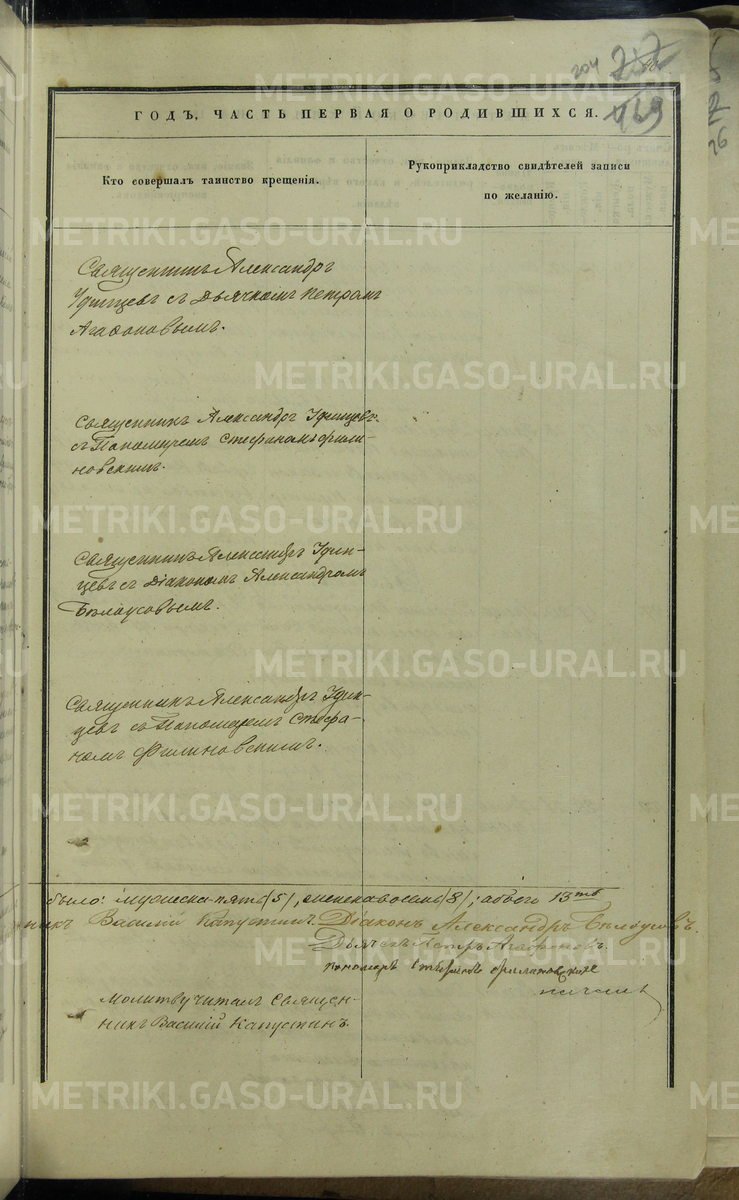 204
469
ГОДЪ, ЧАСТЬ ПЕРВАЯ О РОДИВШИХСЯ.
Кто совершалъ таинство крещенія.
Рукоприкладство свидѣтелей записи
по желанію.
Священникъ Александръ
Удинцевъ съ Дьячкомъ Петромъ
Агафоновымъ.
Священникъ Александръ Удинцевъ
съ Пономаремъ Стефаномъ Фили-
новскимъ.
Священникъ Александръ Удин-
цевъ съ Діакономъ Александромъ
Бѣлоусовымъ.
Священникъ Александръ Удин-
цевъ съ Пономаремъ Стефа-
номъ Филиновскимъ.
было: мужеска пять (5), женска восемь (8); обоего 13ть
никъ Василій Капустинъ. Діаконъ Александръ Бѣлоусовъ.
Дьячекъ Петръ Агафоновъ.
Пономарь Стефанъ
Молитву читалъ Священ-
никъ Василій Капустинъ.
METRIKI.GASO-URAL.RU